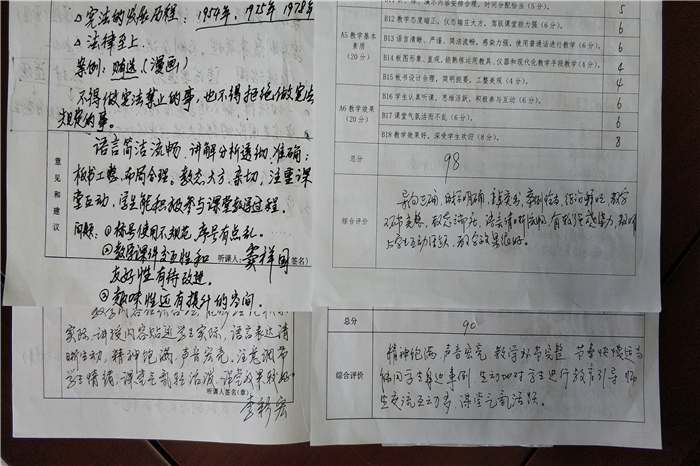 △宪法的发展历程：1954年、1975年 1978年
△法律至上.
案例：贿选（漫画）
不得做宪法禁止的事，也不得拒绝做宪法
规定的事。
意见和建议
语言简洁流畅，讲解分析透彻、准确；
板书工整、布局合理。教态大方、亲切，注重课
堂互动，学生能积极参与课堂教学过程.
问题：①标号使用不规范，序号有点乱.
②教学课件交互性和
听课人：
签名）
友好性有待改进.
③趣味性还有提升的空间.
实际，讲授内容贴近学生实际，语言表达清
晰生动，精神饱满，声音宏亮，注意调节
学生情绪，课堂气氛较活泼，课堂效果较好
听课人签名(章)
演示内容安排合理，时间分配恰当（5分）。
5
A5 教学基本素质（20分）
B12 教学态度端正，仪态端庄大方，驾驭课堂能力强（6分）。
6
B13 语言清晰、严谨、简洁流畅，感染力强，使用普通话进行教学（6分）。
6
B14 板图形象、直观，能熟练运用教具、仪器和现代化教学手段教学（4分）。
4
B15 板书设计合理，简明扼要，工整美观（4分）。
4
A6 教学效果（20分）
B16 学生认真听课，思维活跃，积极参与互动（6分）。
6
B17 课堂气氛活而不乱（6分）。
6
B18 教学效果好，深受学生欢迎（8分）。
8
总分
98
综合评价
导向正确，目标明确
与学生互动活跃，教学效果很好。
总分
90
综合评价
精神饱满 声音宏亮 教学环节完整 节奏快慢适当
能用学生身边事例，生动地对学生进行教育引导 师
生交流互动多，课堂气氛活跃。